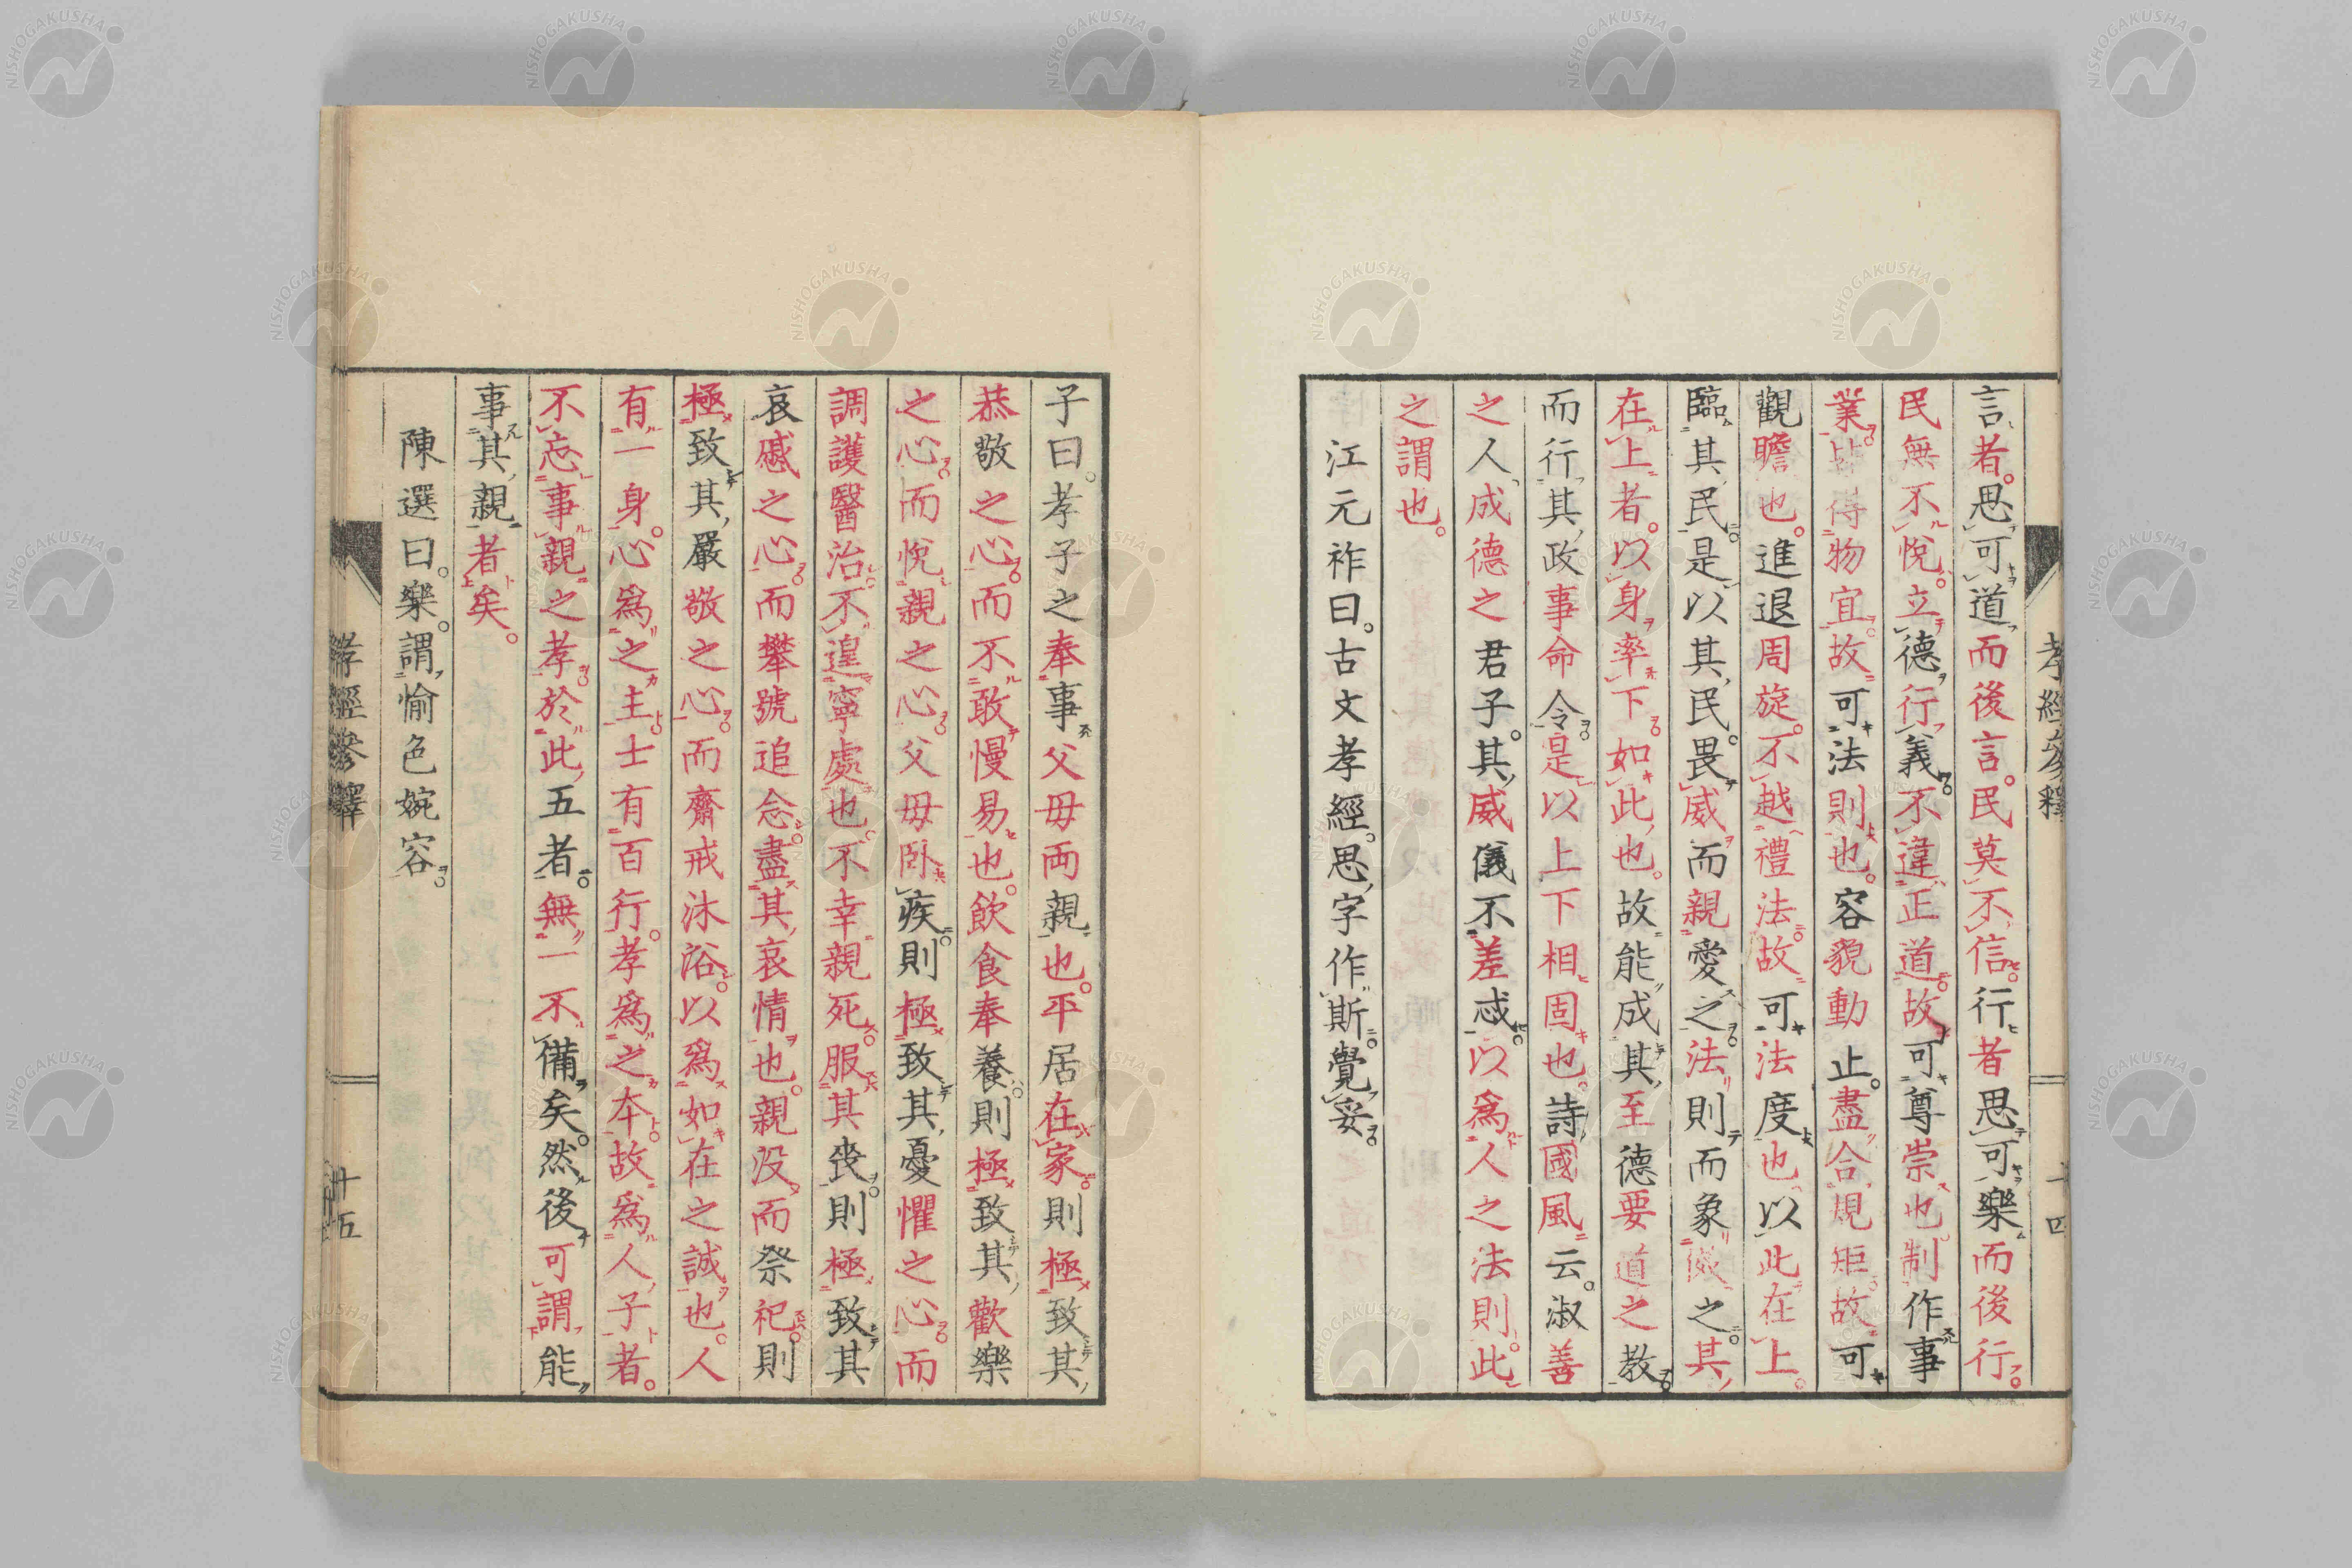 孝經參釋
十四
言者。思可道而後言。民莫不信。行者思可樂而後行。
民無不悅。立德行義。不違正道。故可尊崇也。制作事
業。皆得物宜。故可法則也。容貌動止。盡合規矩。故可
觀瞻也。進退周旋。不越禮法。故可法度也。以此在上。
臨其民。是以其民。畏威而親愛之。法則而象威之。其
在上者。以身率下。如此也。故能成其至德要道之教。
而行其政事命令。是以上下相固也。詩國風云。淑善
之人。成德之君子。其威儀不差忒。以爲人之法則。此
之謂也。
江元祚曰。古文孝經。思字作斯。覺妥。
子曰。孝子之奉事父母兩親也。平居在家。則極致其
恭敬之心。而不敢慢易也。飲食奉養。則極致其歡樂
之心。而悅親之心。父母卧疾。則極致其憂懼之心。而
調護醫治。不遑寧處也。不幸親死。服其喪。則極致其
哀慼之心。而攀號追念。盡其哀情也。親沒而祭祀。則
極致其嚴敬之心。而齋戒沐浴。以爲如在之誠也。人
有一身。心爲之主。士有百行。孝爲之本。故爲人子者。
不忘事親之孝。於此五者。無一不備矣。然後可謂能
事其親者矣。
陳選曰。樂。謂愉色婉容。
孝經參釋
十五
NISHOGAKUSHA